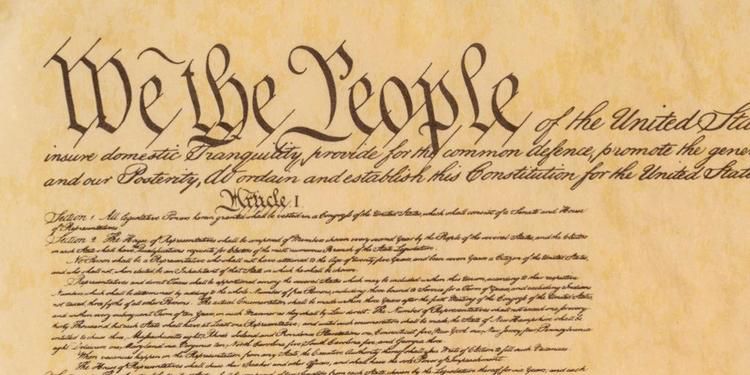 We the People of the United Sta
insure domestic Tranquility, provide for the common defence, promote the gene
and our Posterity, do ordain and establish this Constitution for the United State
Article I
Section 1 All legislative Powers herein granted shall be vested in a Congress of the United States, which shall consist of a Senate and House
of Representatives
Section 2 The House of Representatives shall be composed of Members chosen every second Year by the People of the several States, and the Electors
in each State shall have Qualifications requisite for Electors of the most numerous Branch of the State Legislature
No Person shall be a Representative who shall not have attained to the Age of twenty five Years and been seven Years a Citizen of the United States,
and who shall not, when elected, be an Inhabitant of that State in which he shall be chosen.
Representatives and direct Taxes shall be apportioned among the several States which may be included within this Union, according to their respective
Numbers, which shall be determined by adding to the whole Number of free Persons, including those bound to Service for a Term of Years, and excluding Indians
not taxed, three fifths of all other Persons. The actual Enumeration shall be made within three Years after the first Meeting of the Congress of the United States,
and within every subsequent Term of ten Years, in such Manner as they shall by Law direct. The Number of Representatives shall not exceed one for every
thirty Thousand, but each State shall have at Least one Representative; and until such enumeration shall be made, the State of New Hampshire shall be
entitled to chuse three, Massachusetts eight, Rhode Island and Providence Plantations one, Connecticut five, New York six, New Jersey four, Pennsylvania
eight, Delaware one, Maryland six, Virginia ten, North Carolina five, South Carolina five, and Georgia three.
When vacancies happen in the Representation from any State, the Executive Authority thereof shall issue Writs of Election to fill such Vacancies.
The House of Representatives shall chuse their Speaker and other Officers; and shall have the sole Power of Impeachment.